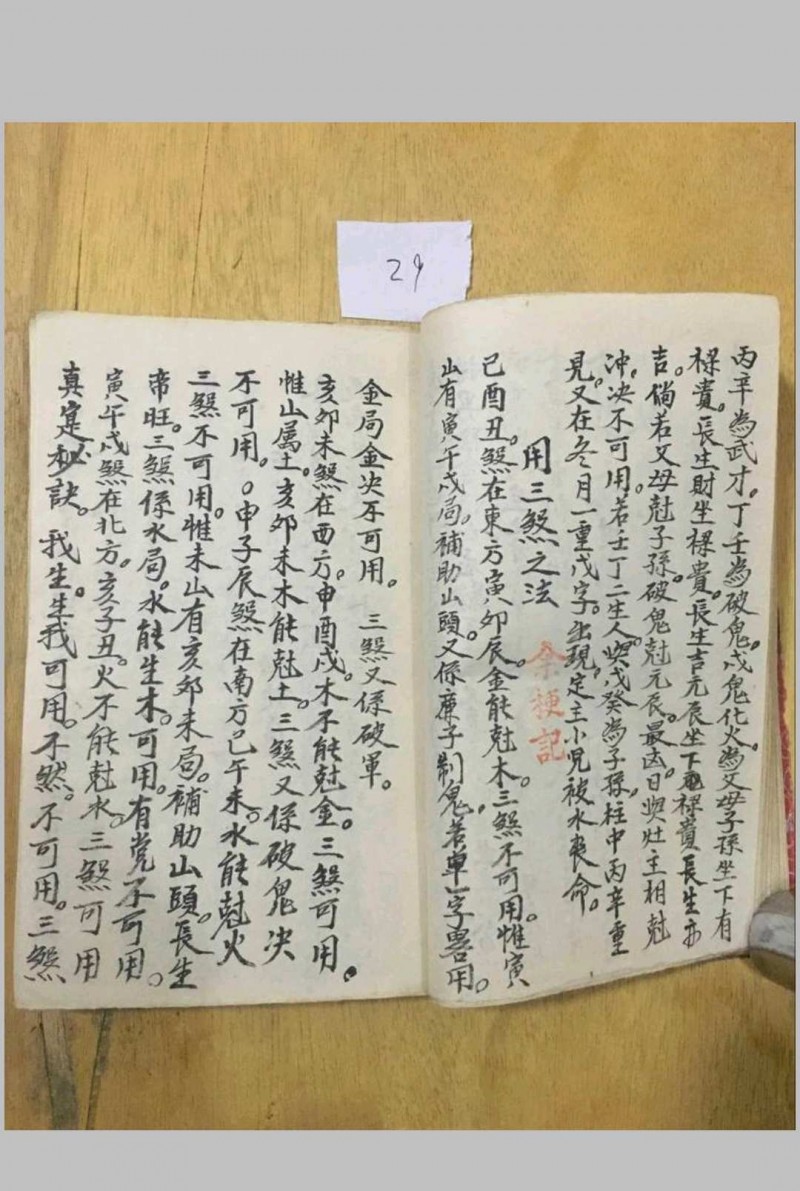 29
丙辛為武才。丁壬為破鬼。戊鬼化火為父母子孫坐下有
祿貴。長生財坐祿貴。長生吉元辰坐下祿貴長生亦
吉。倘若父母尅子孫。破鬼尅元辰。最凶日與灶主相尅
冲。决不可用。若壬丁二生人。與戊癸為子孫。柱中丙辛重
見。又在冬月一重戊字。出現。定主小児被水喪命。
用三煞之法
記
巳酉丑。煞在東方寅卯辰。金能尅木。三煞不可用。惟寅
山有寅午戌局。補助山頭。又係廉子制鬼。若單一字畧用。
金局金决不可用。 三煞又係破軍。
亥卯未煞在西方。申酉戌。木不能尅金。三煞可用。
惟山属土。亥卯未木能尅土。三煞又係破鬼决
不可用。。申子辰煞在南方巳午未。水能尅火
三煞不可用。惟未山有亥卯未局。補助山頭。長生
帝旺。三煞係水局。水能生木。可用。有党不可用。
寅午戌煞在北方。亥子丑。火不能尅水。三煞可用
真寔秘訣。我生。生我可用。不然。不可用。三煞